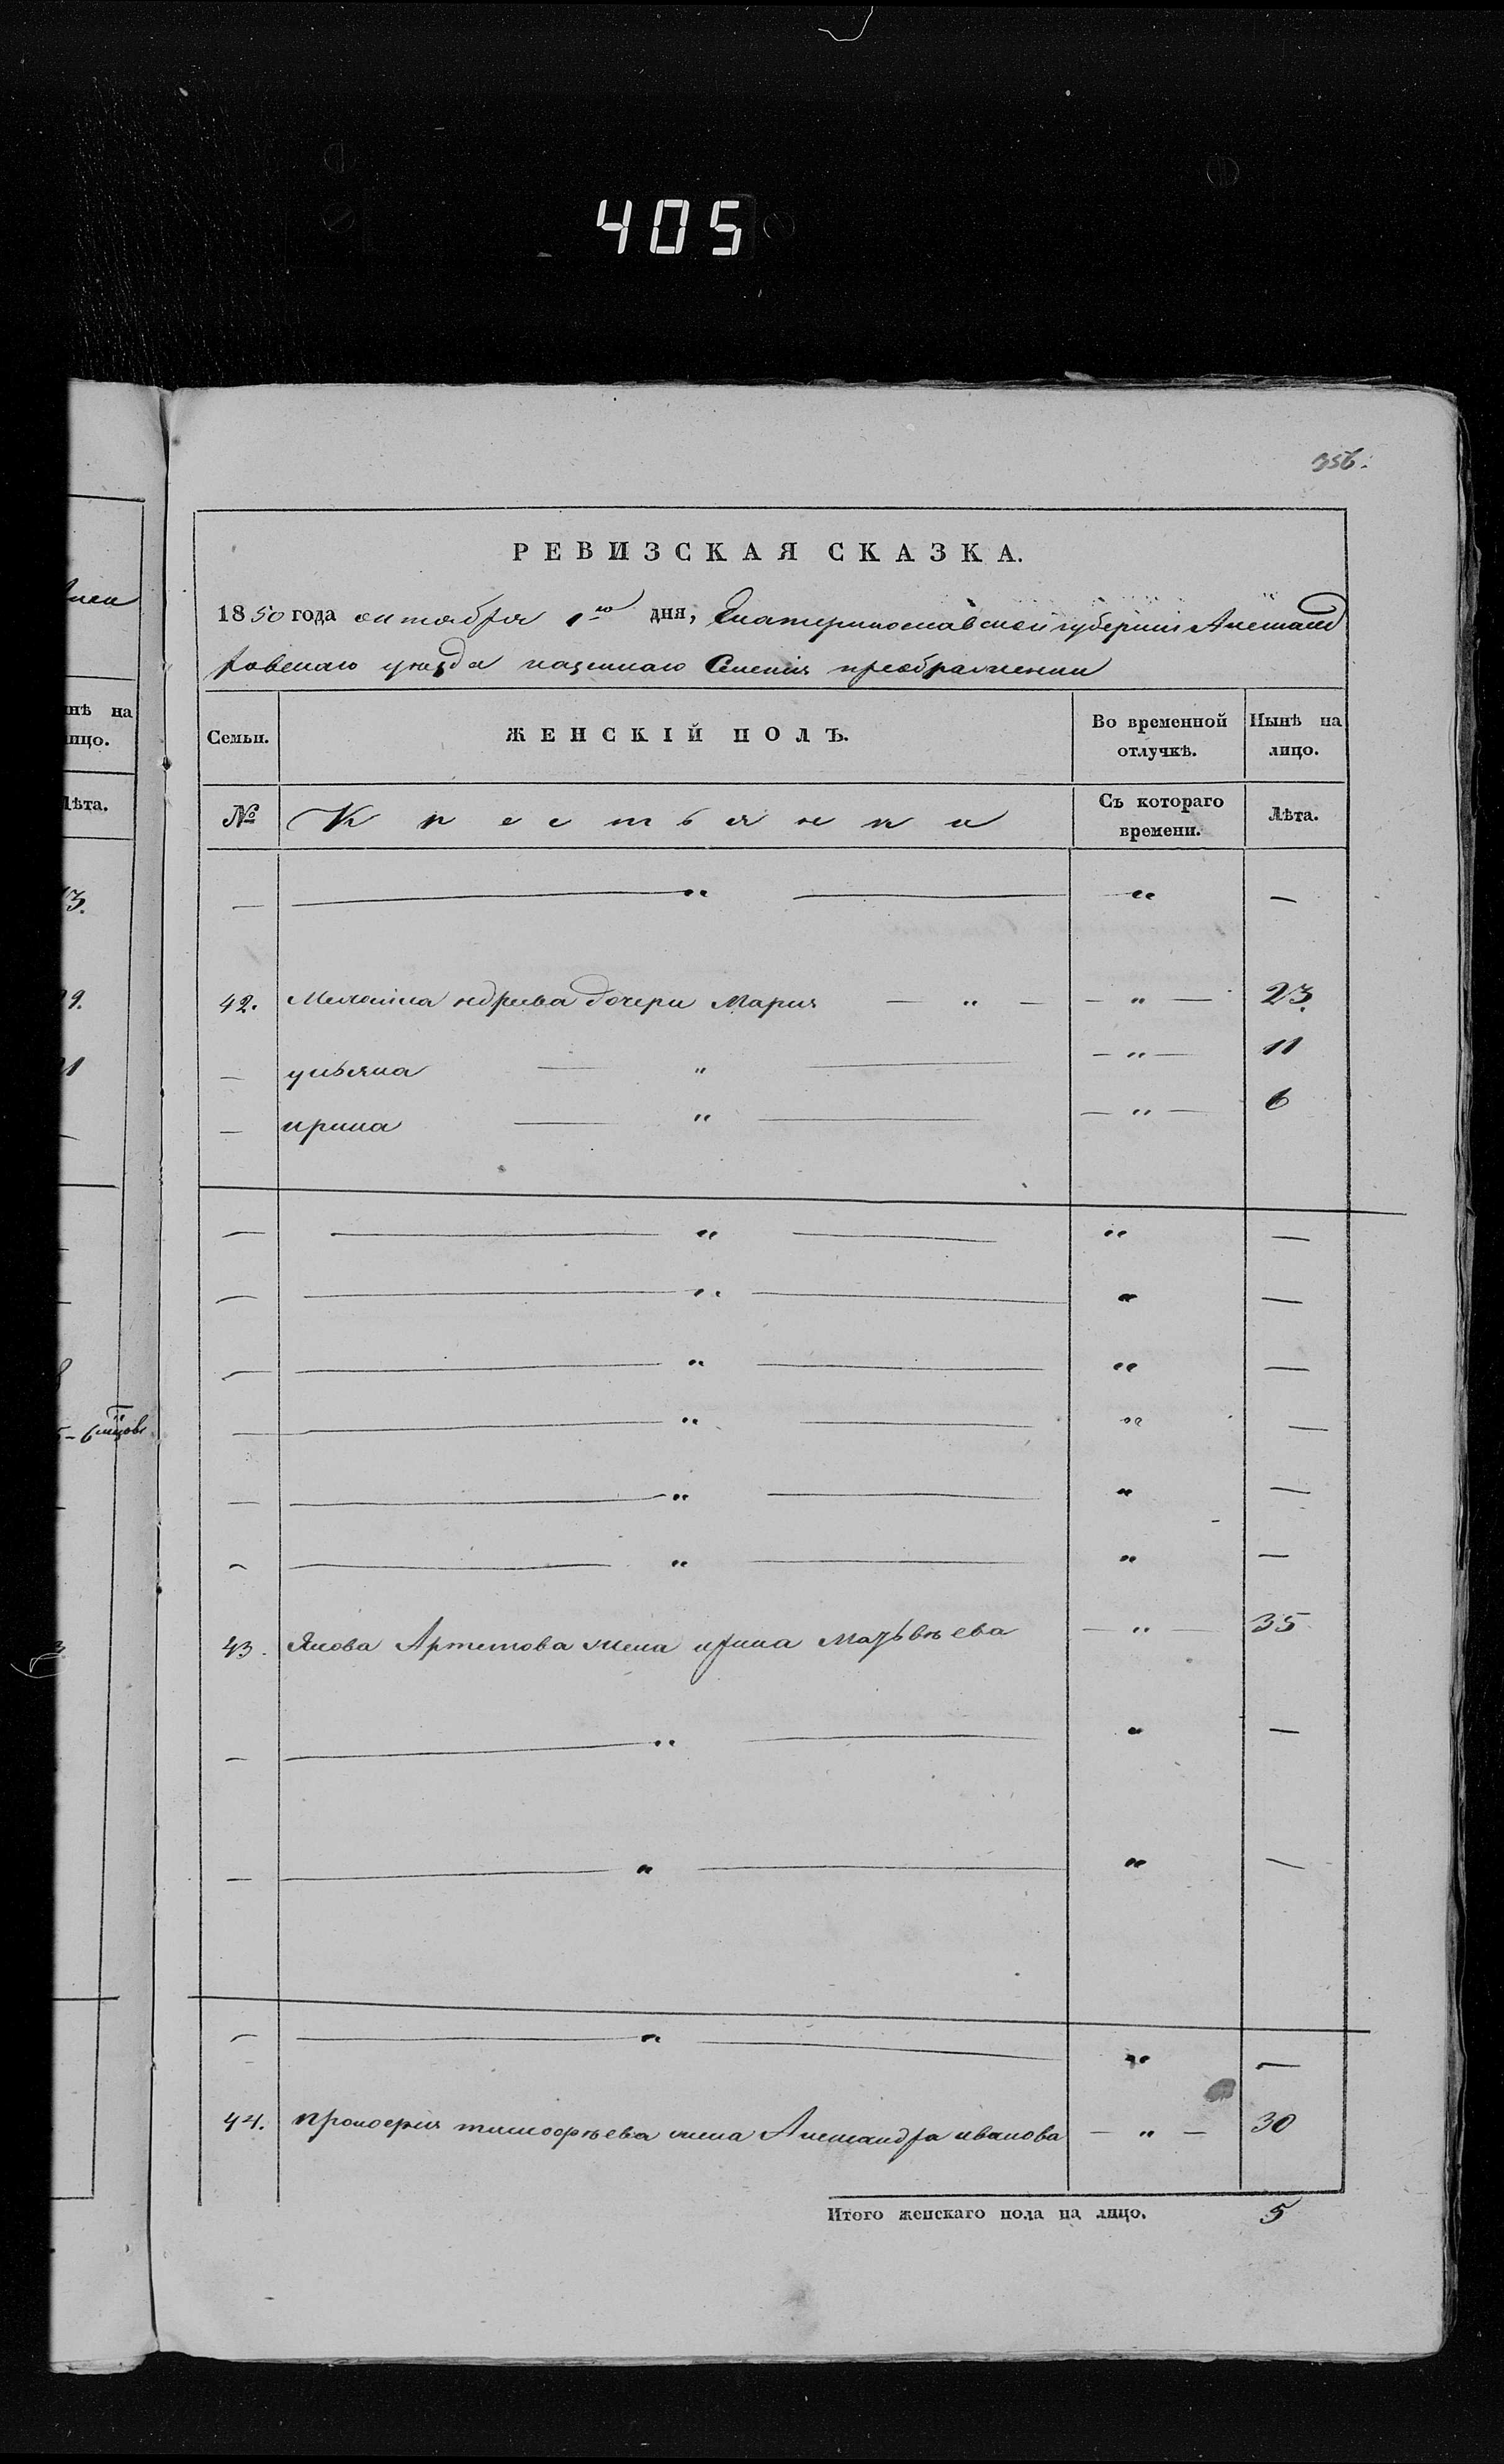 405
356.
РЕВИЗСКАЯ СКАЗКА.
1850 года октября 1го дня, Екатеринославской губернии Александ
ровскаго уезда казеннаго Селения преображенки
Семьи. ЖЕНСКІЙ ПОЛЪ. Во временной отлучкѣ. Нынѣ на лицо.
№ Крестьянки Съ котораго времени. Лѣта.
— — „ — „ —
42. дочери Мария — „ — — „ — 23.
— ульяна — „ — — „ — 11
— ирина — „ — — „ — 6
— — „ — „ —
— — „ — „ —
— — „ — „ —
— — „ — „ —
— — „ — „ —
— — „ — „ —
43. Якова Артемова жена ирина Матьвѣева — „ — 35
— — „ — „ —
— — „ — „ —
— — „ — „ —
44. прокофия тимофѣева жена Александра иванова — „ — 30
Итого женскаго пола на лицо. 5
нѣ на
лицо.
Лѣта.